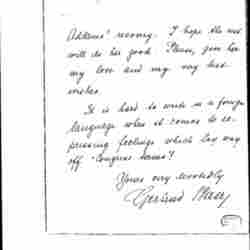 Addams' recovery. I hope the rest
will do her good. Please, give her
my love and my very best
wishes.
It is hard to write in a foreign
language when it comes to ex-
pressing feelings which lay way
off "Congress terms"!
Yours very cordially
Gertrud